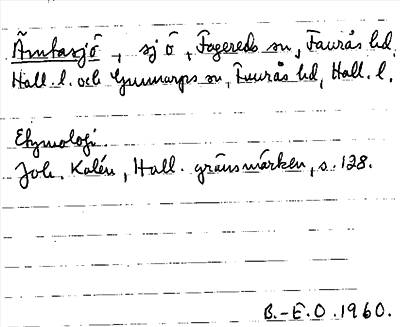 Ämtasjö, sjö, Fagereds sn, Faurås hd,
Hall. l. och Gunnarps sn, Faurås hd, Hall. l.
Etymologi.
Joh. Kalén, Hall. gränsmärken, s. 128.
B.-E.O. 1960.